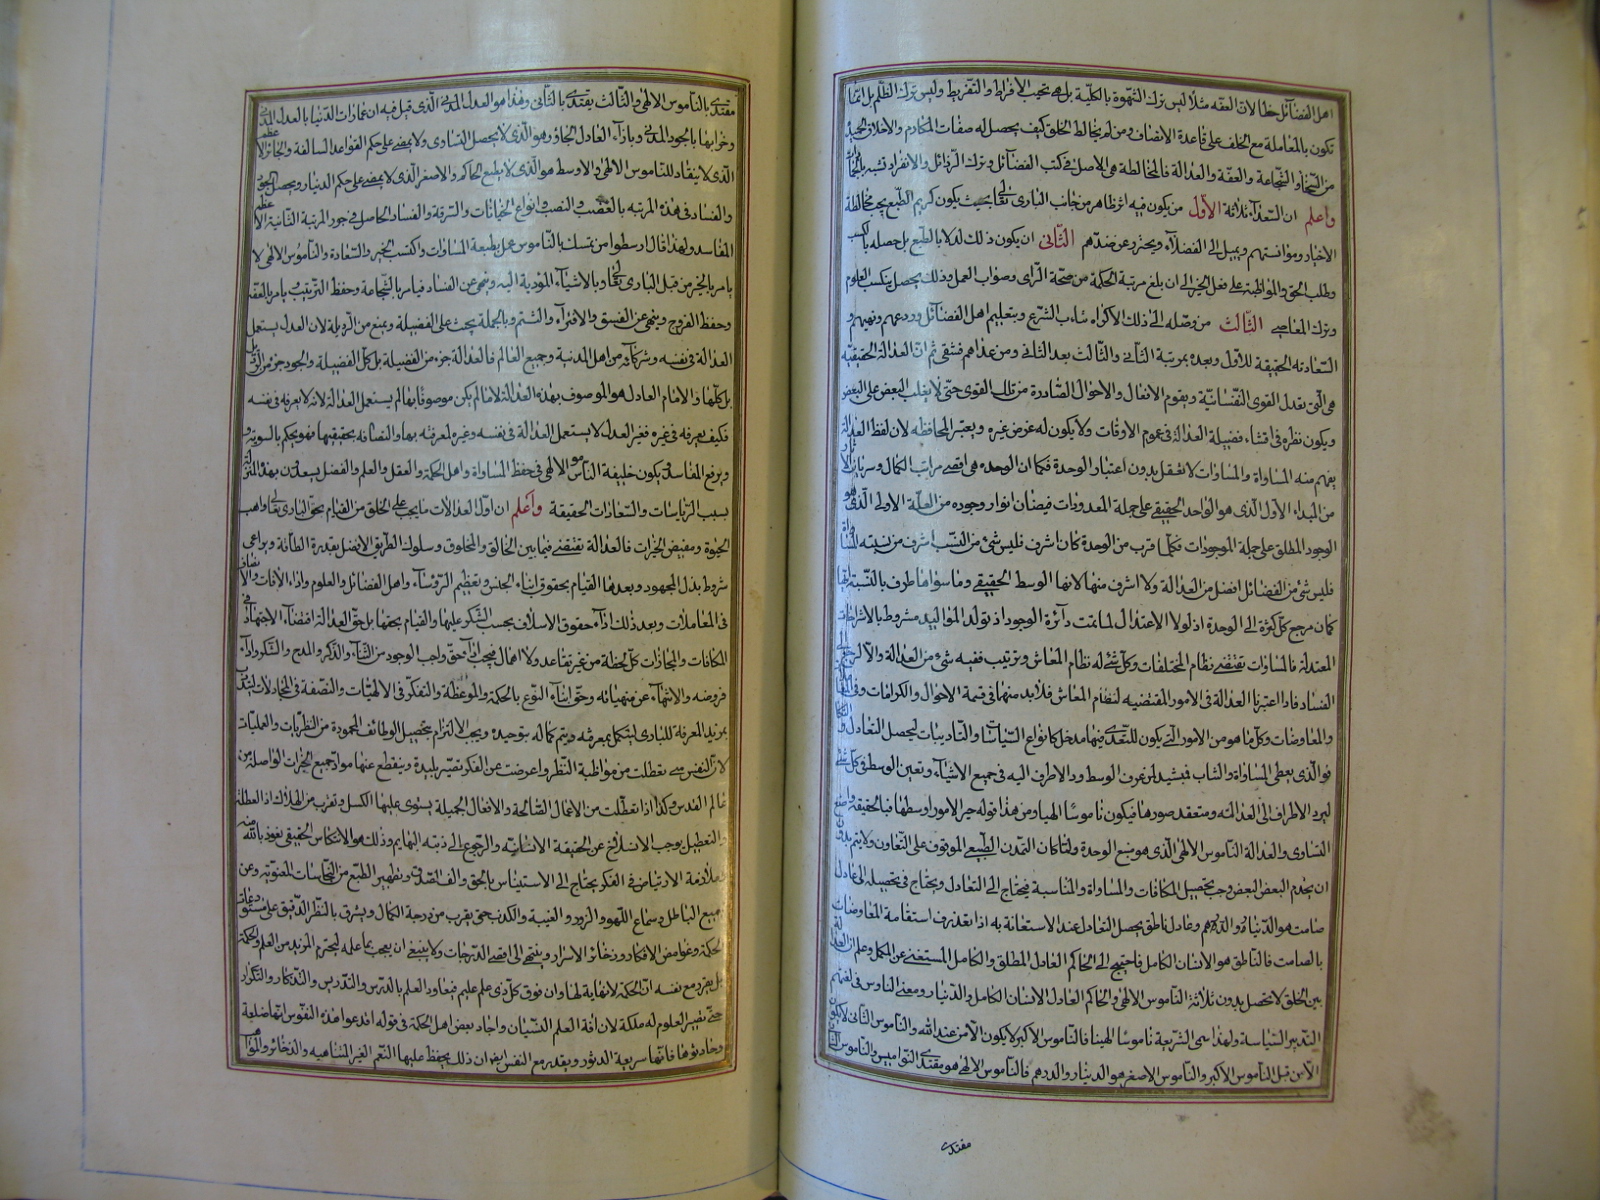 اهل الفضائل خطا لان العفه مثلا ليس ترك الشهوة بالكلية بل هى تجنب الافراط والتفريط وليس ترك الظلم بل انما
تكون بالمعاملة مع الخلق على قاعدة الانصاف ومن لم يخالط الخلق كيف يحصل له صفات المكارم والاخلاق الحميدة
من السخا والشجاعة والعفة والعدالة فالمخالطة هى الاصل فى كتب الفضائل وترك الرذائل والانفراد تشبه
واعلم ان السعداء ثلاثة الاول من يكون فيه اثر ظاهر من جانب البارى تعالى بحيث يكون كريم الطبع يحب مخالطة
الاخيار وموانستهم ويميل الى الفضلاء ويحترز عن ضدهم الثانى ان يكون ذلك له لا بالطبع بل حصله بالكسب
وطلب الحق والمواظبة على فعل الخير الى ان بلغ مرتبة الحكمة من صحة الراى وصواب العمل وذلك يحصل بكسب العلوم
وترك المعاصى الثالث من وصله الى ذلك الاكراه بتاديب الشرع وبتعليم اهل الفضائل وردعهم ونهيهم و
السعادته الحقيقة للاول وبعده بمرتبة الثانى والثالث بعد الثانى ومن عداهم فشقى ثم ان العدالة الحقيقيه
هى التى تعدل القوى النفسانية ويقوم الافعال والاحوال الصادرة من تلك القوى حتى لا يغلب البعض على البعض
ويكون نظره فى اقتناء فضيلة العدالة فى عموم الاوقات ولا يكون له غرض غيره ويعتبر المحافظه لان لفظ العدالة
يفهم منه المساواة والمساوات لا تعقل بدون اعتبار الوحدة فكما ان الوحده هى اقصى مراتب الكمال وسريان
من المبداء الاول الذى هو الواحد الحقيقى على جملة المعدودات فيضان انوار وجوده من العلة الاولى الذى هو
الوجود المطلق على جملة الموجودات فكلما قرب من الوحدة كان اشرف فليس شئ من النسب اشرف من نسبته المساواة
فليس شئ من الفضائل افضل من العدالة ولا اشرف منها لانها الوسط الحقيقى وما سواها طرف بالنسبة اليها
كمان مرجع كل كثرة الى الوحدة اذ لولا الاعتدال لما تمت دآئرة الوجود اذ تولد المواليد مشروط بالامتزاجات
المعتدلة فالمساوات تقتضى نظام المختلفات وكل شئ له نظام المعاش وترتيب ففيه شئ من العدالة والا
الفساد فاذا اعتبرنا العدالة فى الامور المقتضيه لنظام المعاش فلا بد منها فى قسمة الاحوال والكرامات وفى
والمعاوضات وكل ما هو من الامور التى يكون للتعدى فيها مدخل كانواع السياسات والتاديبات ليحصل التعادل و
فهو الذى يعطى المساواة والتناسب فيشيد لمن عرف الوسط ورد الاطرف اليه فى جميع الاشياء وتعين الوسط فى كل شئ
ليرد الاطراف الى العدالته فيكون ناموسا الهيا ومن هذا قوله خير الامور اوسطها فبالحقيقه واضع
التساوى والعدالة الناموس الالهى الذى هو منبع الوحدة ولما كان التمدن الطبيعى الموقوف على التعاون ولا يتم بدون
ان يخدم البعض البعض وجب تحصيل المكافات والمساواة والمناسبة فيحتاج الى التعادل ويحتاج فى تحصيله الى عادل
صامت هو الدنيار والدرهم وعادل ناطق يحصل التعادل عند الاستعانة به اذا تعذرت استقامة المعاوضات
بالصامت فالناطق هو الانسان الكامل فاحتيج الى الحاكم العادل المطلق والكامل المستغنى عن المكمل وعلم ان العدالة
بين الخلق لا تحصل بدون ثلاثة الناموس الالهى والحاكم العادل الانسان الكامل والدنيار ومعنى الناوس فى لغتهم
التدبير السياسة ولهذا سمى الشريعة ناموسا الهيئا فالناموس الاكبر لا يكون الا من عند الله والناموس الثانى لا يكون
الا من قبل الناموس الاكبر والناموس الاصغر هو الدنيار والدرهم فالناموس الالهى هو مقتدى النواميس والناموس الثانى
مقتدى
مقتدى بالناموس الالهى والثالث يقتدى بالثانى وهذا هو العدل المدنى الذى قيل فيه ان عمارات الدنيا بالعدل المدنى
وخرابها بالجود المدنى وبازآء العادل الجاؤر وهو الذى لا يحصل التساوى ولا يمضى على حكم القواعد السالفة والجائر الاعظم
الذى لا ينقاد للناموس الالهى والاوسط هو الذى لا يطيع الحاكم والاصغر الذى لا يمضى على حكم الدنيار ويحصل الجور
والفساد فى هذه المرتبه بالغضب والنصب وانواع الخيانات والسرقة والفساد الحاصل فى جور المرتبة الثانية الاعظم
المفاسد ولهذا قال ارسطوا من تمسك بالناموس عمل بطبيعة المساوات واكتسب الخير والسعادة والناموس الالهى لا
يامر بالخير من قبل البارى تعالى وبالاشياء المؤدية اليه وينهى عن الفساد فيامر بالشجاعة وحفظ الترتيب ويامر بالعفه
وحفظ الفروج وينهى عن الفسق والافتراء والشتم وبالجملة يحث على الفضيلة ويمنع من الرذيلة لان العدل يستعمل
العدالة فى نفسه وشركآئه من اهل المدنية وجميع العالم فالعدالة جزء من الفضيلة بل كل الفضيلة والجود جزء من الرذيلة
بل كلها والامام العادل هو الموصوف بهذه العدالة لا مالم يكن موصوفا بها لم يستعمل العدالة لانه لا يعرفه فى نفسه
فكيف يعرفه فى غيره فغير العدل لا يستعمل العدالة فى نفسه وغيره لمعرفته بها واتصافه بحقيقتها فهو يحكم بالسوية و
ويرفع المفاسد ويكون خليفة الناموس الالهى فى حفظ المساواة واهل الحكمة والعقل والعلم والفضل يسعدون بهذه المنزلة
بسبب الرياسات والسعادات الحقيقة واعلم ان اول العدالات ما يجب على الخلق من القيام بحق البارى تعالى واهب
الحيوة ومفيض الخيرات فالعدالة تقتضى فيما بين الخالق والمخلوق وسلوك الطريق الافضل بقدرة الطاقة ويراعى
شروط بذل المجهود وبعدها القيام بحقوق ابناء الجنس وتعظيم الرؤساء واهل الفضائل والعلوم واداء الامانات والانصاف
فى المعاملات وبعد ذلك اداء حقوق الاسلاف بحسب الشكر عليها والقيام بحقها بل حق العدالة اقتضاء الاجتهاد فى
المكافات والمجازات كل لحظة من غير تقاعد ولا اهمال فيجب اداء حق واجب الوجود من الثناء والذكر والمدح والشكر واداء
فروضه والانتهاء عن منهياته وحق ابناء النوع بالحكمة والموعظة والتفكر فى الالهيات والنصفة فى المجادلات
بمزيد المعرفة للبارى ليتكمل بمعرفته ويتم كماله بتوحيده ويجب الالتزام بتحصيل الوظائف المحمودة من النظريات والعمليات
لان النفس متى تعطلت من مواظبة النظر واعرضت عن الفكر تصير بليدة وينقطع عنها مواد جميع الخيرات الواصلة من
عالم القدس وكذا اذا تعطلت من الاعمال الصالحة والافعال الجميلة يستوى عليها الكسل وتقرب من الهلاك اذ العطلة
والتعطيل يوجب الانسلاخ عن الحقيقة الانسانيه والرجوع الى ذيته البهايم وذلك هو الانتكاس الحقيقى نعوذ بالله منه
فملازمة الارتياض فى الفكر يحتاج الى الاستيناس بالحق والف الصدق وتطهير الطبع من النجاسات المعنويه وعن
جميع الباطل وسماع اللهو والزور والغيبة والكذب حتى يقرب من درجة الكمال ويشرق بالنظر الدقيق على
الحكمة وغوامض الافكار وذخائر الاسرار وينتهى الى اقصى الدرجات ولا ينبغى ان يعجب بما علمه ليحترم المزيد من العلم والحكمة
بل يقرر مع نفسه ان الحكمة لا نهاية لها وان فوق كل ذى علم عليم فيعاود العلم بالدرس والتدريس والتذكار والتكرار
حتى تصير العلوم له ملكة لان افة العلم النسيان واجاد بعض اهل الحكمة فى قوله اقدعوا هذه النفوس انها طلعة
وحادثوها فانها سريعة الدثور ويقدر مع النفس ايضا ان ذلك يحفظ عليها النعم الغير المتناهيه والذخائر والمواهب